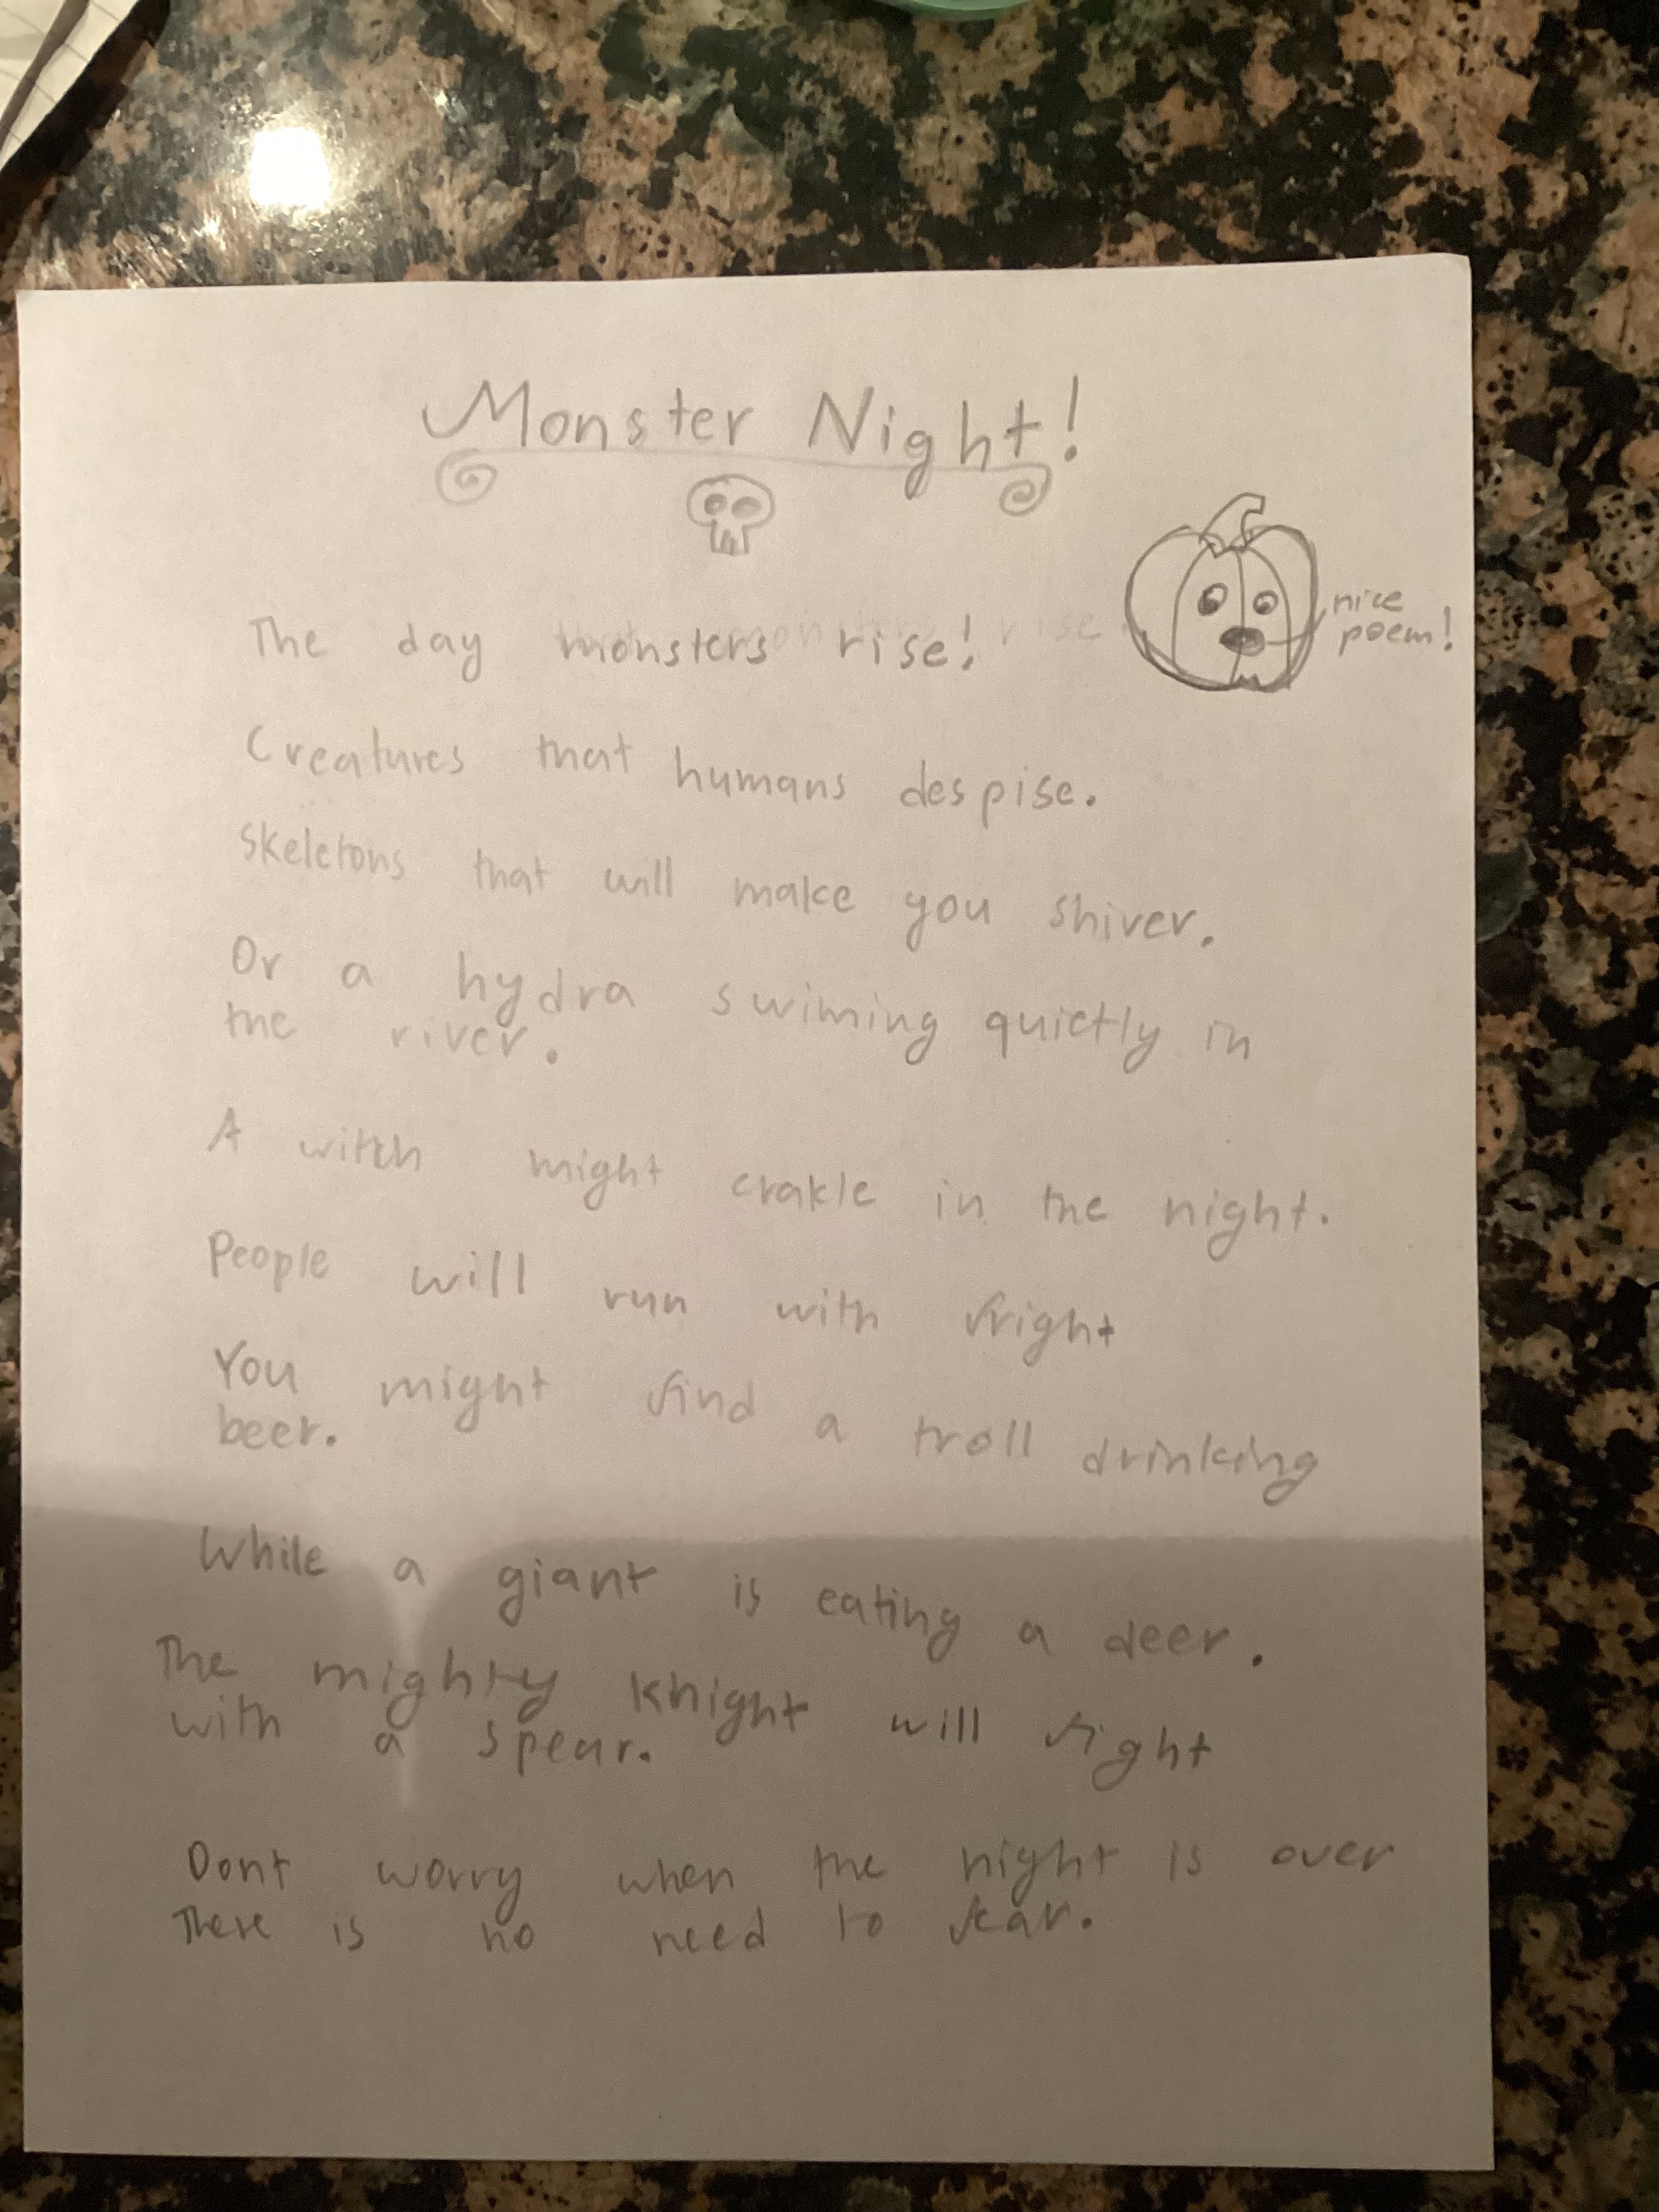 Monster Night!
nice
poem!
The day monsters rise!
Creatures that humans despise.
Skeletons that will make you shiver.
Or a hydra swiming quietly in
the river.
A witch might crakle in the night.
People will run with fright
You might find a troll drinking
beer.
While a giant is eating a deer.
The mighty knight will fight
with a spear.
Dont worry when the night is over
There is no need to fear.